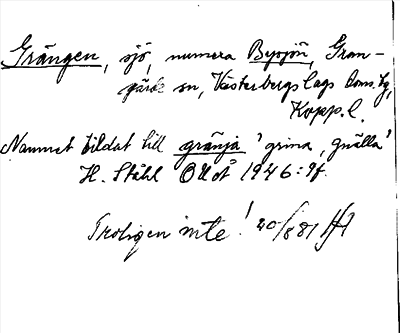 Grängen, sjö, numera Bysjön, Gran-
gärde sn, Västerbergslags doms.hg,
Kopp.l.
Namnet bildat till gränja 'grina, gnälla'
H. Ståhl OUÅ 1946:9f.
Troligen inte! 20/8 81